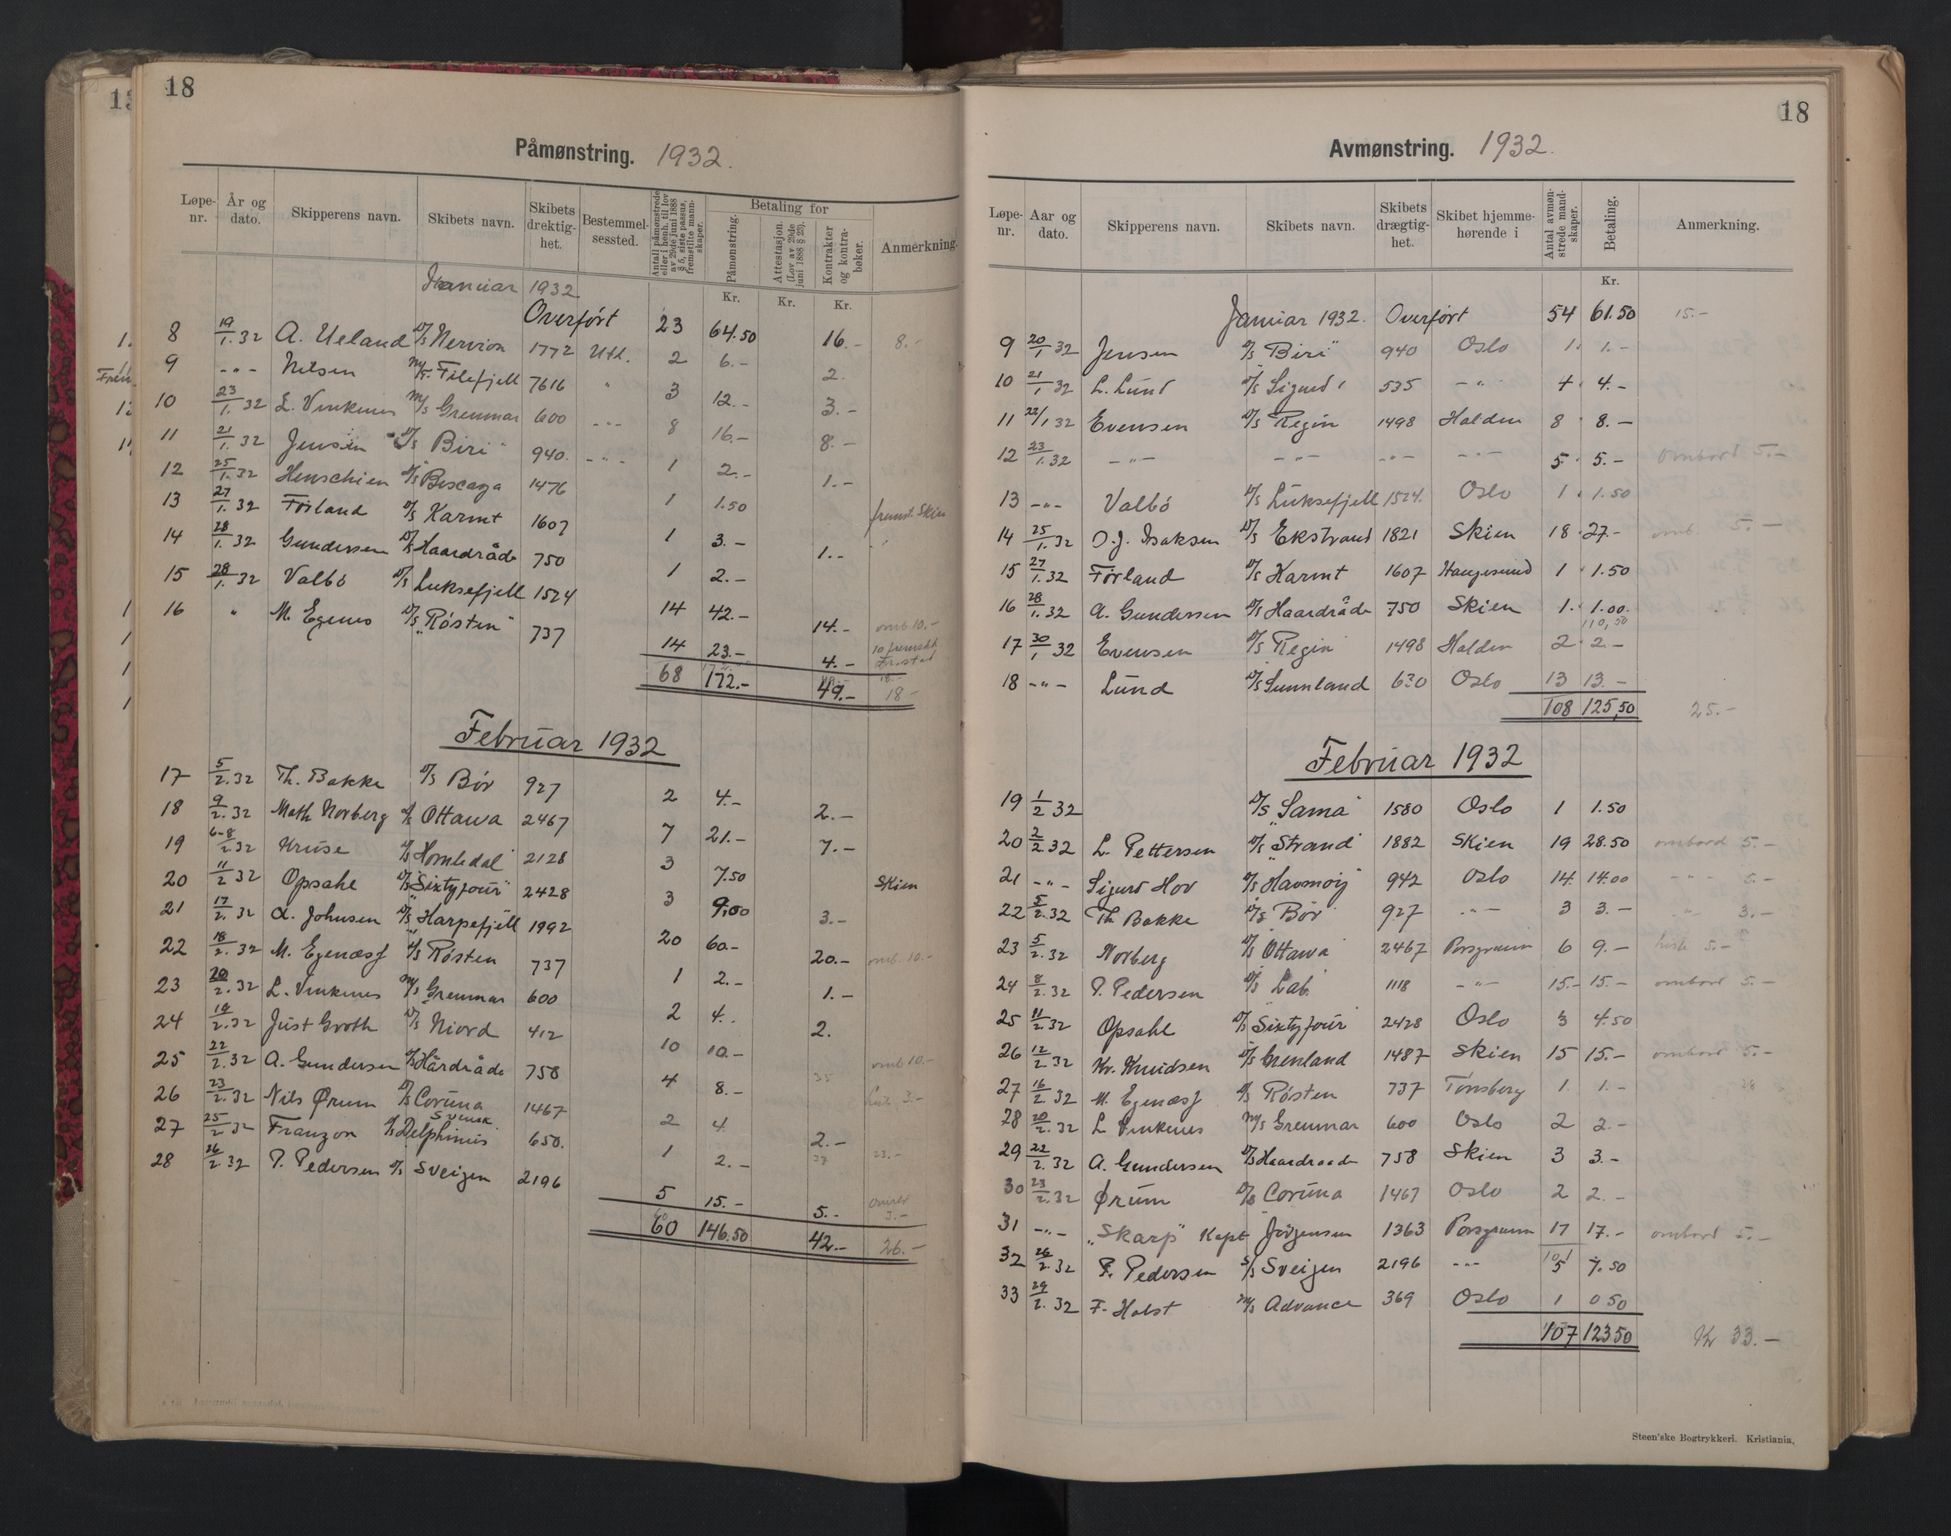 18
Påmønstring. 1932.
Løpe-nr. År og dato. Skipperens navn. Skibets navn. Skibets drektig-het. Bestemmel-sessted. Antall påmønstrede eller i henh. til lov av 29de juni 1888 § 5, siste passus, fremstilte mann-skaper. Betaling for Påmønstring. Attestasjon. (Lov av 29de juni 1888 § 29). Kontrakter og kontra-bøker. Anmerkning.
Kr. Kr. Kr.
Januar 1932
Overført 23 64.50 16.- 8.-
8 19/1.32 A. Ueland D/S Nervion 1772 Utl. 2 6.- 2.
9 -"- Nilsen M/T. Filefjell 7616 " 3 12.- 3.-
10 23/1.32 L. Vinkenes M/S Grenmar 600 -"- 8 16.- 8.-
11 21/1.32 Jensen D/S Biri" 940. -"- 1 2.- 1.-
12 25/1.32 Henschien D/S Biscaya 1476 1 1.50 fremst. Skien
13 27/1.32 Førland D/S Karmt 1607 1 3.- 1.-
14 28/1.32 Gundersen D/S Haardråde 750 1 2.-
15 28/1.32 Valbö D/S Luksefjell 1524 14 42.- 14.- omb 10.-
16 " M. Egenes D/S "Røsten" 737 14 23.- 4.- 10 fremskt
68 172.- 49.- 18.-
Februar 1932
17 5/2.32 Th. Bakke D/S Bør 927 2 4.- 2.-
18 9/2.32 Math Norberg D/S Ottawa 2467 7 21.- 7.-
19 6-8/2.32 Kruse D/S Hornledal" 2128 3 7.50 Skien
20 11/2 32 Opsahl D/S "Sixtyfour" 2428 3 9.00 3.-
21 17/2.32 A. Johnsen D/S "Harpefjell 1992 20 60.- 20.- omb. 10.-
22 18/2.32 M. Egenæsf D/S Røsten 737 1 2.- 1.-
23 20/2.32 L. Vinkenes M/S Grenmar 600 2 4.- 2.
24 19/2.32 Just Groth D/S Niord 412 10 10.- omb 10.-
25 22/2.32 A. Gundersen D/S Hårdråde 758 4 8.- 3.-
26 23/2.32 Nils Ørum D/S Coruna 1467 2 4 2.-
27 25/2 32 Franzon D/S Delphinus Svensk. 650. 1 2.- 23.-
28 26/2.32 P. Pedersen D/S Sveigen 2196 5 15.- 5.- 3.-
60 146.50 42.- 26.-
18
Avmønstring. 1932.
Løpe-nr. Aar og dato. Skipperens navn. Skibets navn. Skibets drægtig-het. Skibet hjemme-hørende i Antal avmøn-strede mand-skaper. Betaling. Anmerkning.
Kr.
Januar 1932. Overført 54 61.50 15.-
9 20/1 32 Jensen D/S "Biri" 940 Oslo 1 1.-
10 21/1 32 L. Lund D/S Sigurd 535 -"- 4 4.-
11 22/1 32 Evensen D/S Regin 1498 Halden 8 8.-
12 23/1.32 -"- -"- -"- -"- 5 5.- ombord 5.-
13 -"- Valbö D/S Luksefjell 1524. Oslo 1 1.50
14 25/1.32 O.J. Isaksen D/S Ekstrand 1821 Skien 18 27.- omb. 5.-
15 27/1.32 Førland D/S Karmt 1607 Haugesund 1 1.50
16 28/1.32 A. Gundersen D/S Haardråde 750 Skien 1. 1.00.
110,50
17 30/1 32 Evensen D/S Regin 1498 Halden 2 2.-
18 -"- Lund D/S Sunnland 630 Oslo 13 13.-
108 125,50 25.-
Februar 1932
19 1/2 32 D/S "Sama" 1580 Oslo 1 1.50
20 2/2.32 L. Pettersen D/S "Strand" 1882 Skien 19 28.50 ombord 5.-
21 -"- Sigurd Hov D/S "Havmøy" 942 Oslo 14 14.00 -"- 5.-
22 5/2.32 Th Bakke D/S Bør 927 -"- 3 3.- -"- 3.-
23 5/2.32 Norberg D/S Ottawa 2467 Porsgrunn 6 9.- 5.-
24 8/2.32 P. Pedersen D/S Lab 1118 -"- 15.- 15.- ombord 5.-
25 11/2.32 Opsahl D/S Sixtyfour" 2428 Oslo 3 4.50
26 12/2.32 Kr. Knudsen D/S Grenland 1487 Skien 15 15.- ombord 5.-
27 16/2.32 M. Egenæsf D/S Røsten 737 Tønsberg 1. 1.- 28
28 20/2.32 L Vinkenes M/S Grenmar 600 Oslo 2 2.-
29 22/2.32 A. Gundersen D/S Haardraade 758 Skien 3 3.-
30 23/2.32 Ørum D/S Coruna 1467 Oslo 2 2.-
31 -"- "Skarp" Kapt Jörgensen 1363 Porsgrunn 17 17.- ombord 5.-
101
32 26/2.32 P. Pedersen S/S Sveigen 2196 -"- 5 7.50
33 29/2.32 F. Holst M/S Advance 369 Oslo 1 0 50
107 123 50 Kr 33.-
Steen'ske Bogtrykkeri. Kristiania.